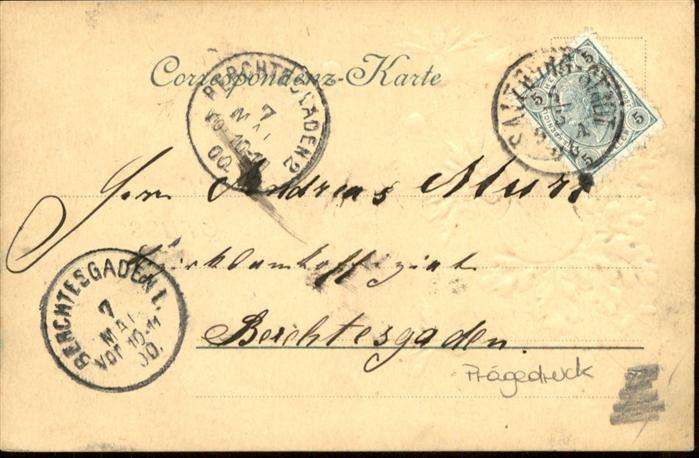 Correspondenz-Karte
BERCHTESGADEN 2
7
MAI
VOR 10-11
00
SALZBURG STADT
5 5
5
Herrn Andreas Murr
Berchtesgaden.
BERCHTESGADEN 1.
7
MAI
VOR 10-11
00.
Prägedruck